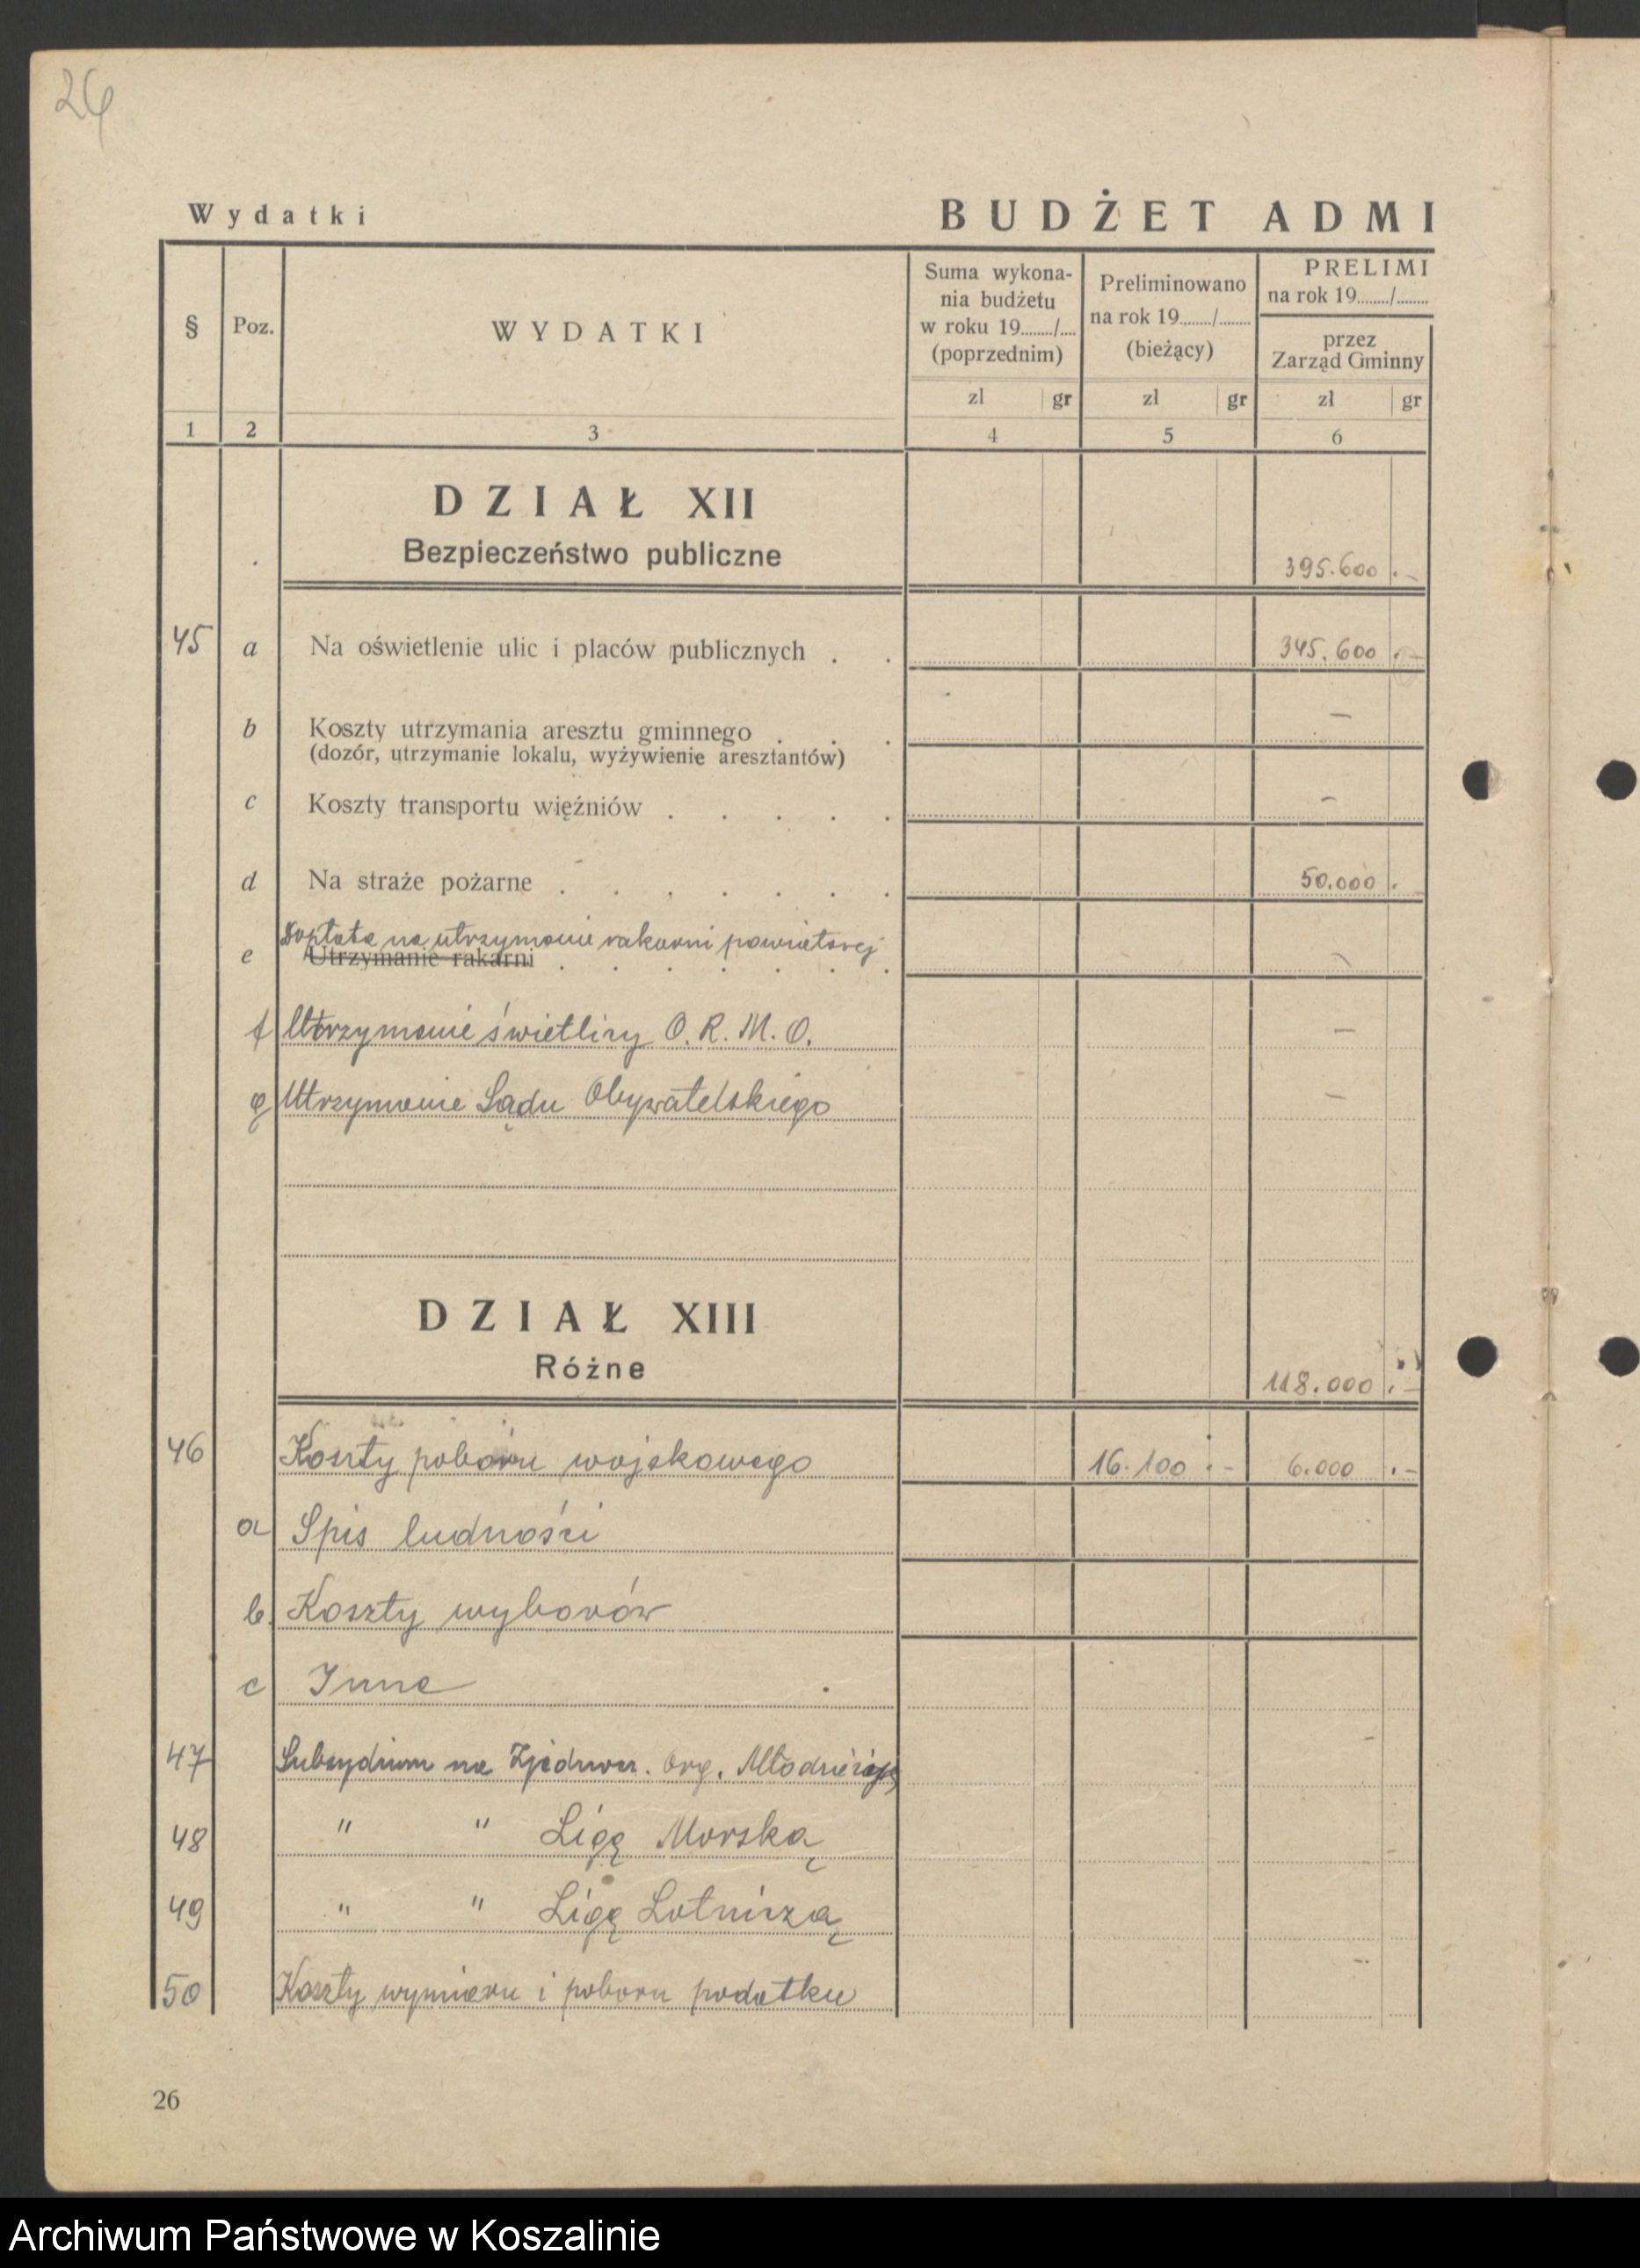 26
Wydatki
BUDŻET ADMI
§
Poz.
WYDATKI
Suma wykona-
nia budżetu
w roku 19......../....
(poprzednim)
Preliminowano
na rok 19......../........
(bieżący)
PRELIMI
na rok 19......../........
przez
Zarząd Gminny
zł gr zł gr zł gr
1 2 3 4 5 6
DZIAŁ XII
Bezpieczeństwo publiczne
395.600 . -
45 a Na oświetlenie ulic i placów publicznych . . 345.600 . -
b Koszty utrzymania aresztu gminnego . . . -
(dozór, utrzymanie lokalu, wyżywienie aresztantów)
c Koszty transportu więźniów . . . . . -
d Na straże pożarne . . . . . . . 50.000 . -
Dopłata na utrzymanie rakarni powiatowej
e Utrzymanie rakarni . . . . . . . -
f Utrzymanie świetlicy O. R. M. O. -
g Utrzymanie Sądu Obywatelskiego -
DZIAŁ XIII
Różne
118.000 . -
46 Koszty poboru wojskowego 16.100 . - 6.000 . -
a Spis ludności
b. Koszty wyborów
c Inne
47 Subsydium na Zjednocz. Org. Młodzieżową -
48 " " Ligę Morską -
49 " " Ligę Lotniczą
50 Koszty wymiaru i poboru podatku -
26
Archiwum Państwowe w Koszalinie